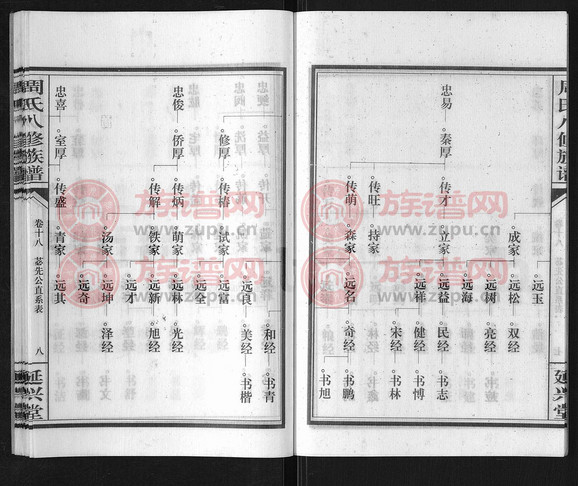 周氏八修族谱
延兴堂
忠易
秦厚
传才
传旺
传萌
成家
立家
持家
森家
远玉
远松
远树
远海
远益
远祥
远名
双经
亮经
民经
健经
宋经
奇经
书志
书博
书林
书鹏
书旭
忠俊
忠喜
修厚
侨厚
室厚
传椿
传炳
传解
传盛
试家
萌家
铁家
汤家
青家
远良
远富
远全
远林
远新
远才
远坤
远奇
远其
和经
美经
光经
旭经
泽经
书青
书楷
周氏八修族谱
卷十八
苾先公直系表
八
延兴堂
族谱网
www.zupu.cn
族谱网
www.zupu.cn
族谱网
www.zupu.cn
族谱网
www.zupu.cn